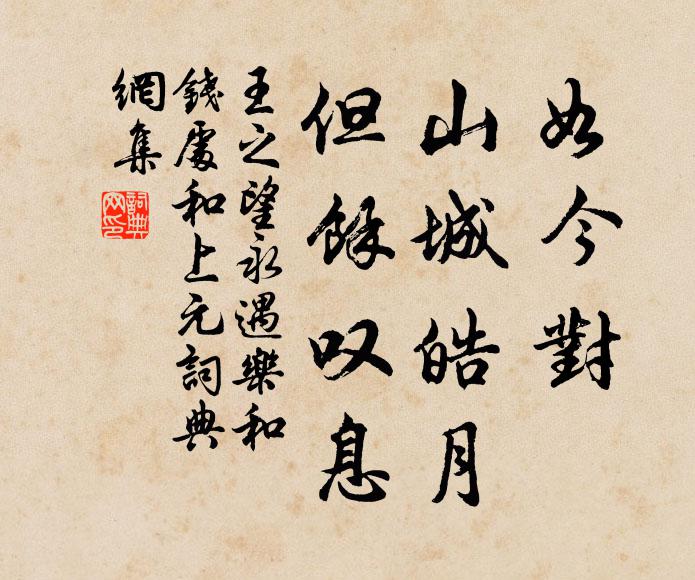 如今對
山城皓月
但餘叹息
王之望永遇樂和
錢處和上元詞典
網集
詞典
网印